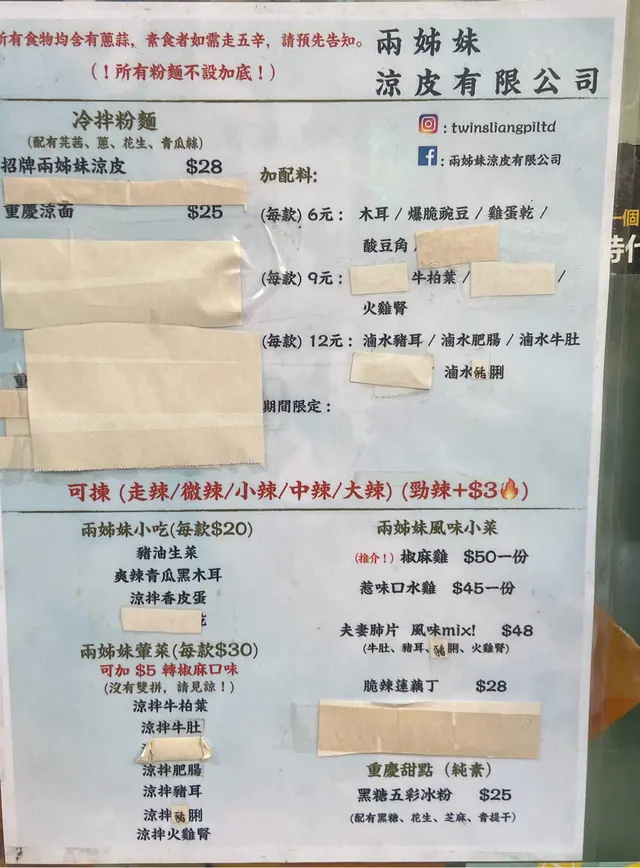 所有食物均含有蔥蒜，素食者如需走五辛，請預先告知。
(！所有粉麵不設加底！)
兩姊妹
涼皮有限公司
: twinsliangpiltd
: 兩姊妹涼皮有限公司
冷拌粉麵
(配有芫茜、蔥、花生、青瓜絲)
招牌兩姊妹涼皮 $28
重慶涼面 $25
重
加配料:
(每款) 6元： 木耳 / 爆脆豌豆 / 雞蛋乾 /
酸豆角
(每款) 9元： 牛柏葉 / /
火雞腎
(每款) 12元： 滷水豬耳 / 滷水肥腸 / 滷水牛肚
滷水豬脷
期間限定：
可揀 (走辣/微辣/小辣/中辣/大辣) (勁辣+$3🔥)
兩姊妹小吃(每款$20)
豬油生菜
爽辣青瓜黑木耳
涼拌香皮蛋
兩姊妹葷菜(每款$30)
可加 $5 轉椒麻口味
(沒有雙拼，請見諒！)
涼拌牛柏葉
涼拌牛肚
涼拌肥腸
涼拌豬耳
涼拌豬脷
涼拌火雞腎
兩姊妹風味小菜
(推介！) 椒麻雞 $50一份
惹味口水雞 $45一份
夫妻肺片 風味mix! $48
(牛肚、豬耳、豬脷、火雞腎)
脆辣蓮藕丁 $28
重慶甜點（純素）
黑糖五彩冰粉 $25
(配有黑糖、花生、芝麻、青提干)
一個
時代